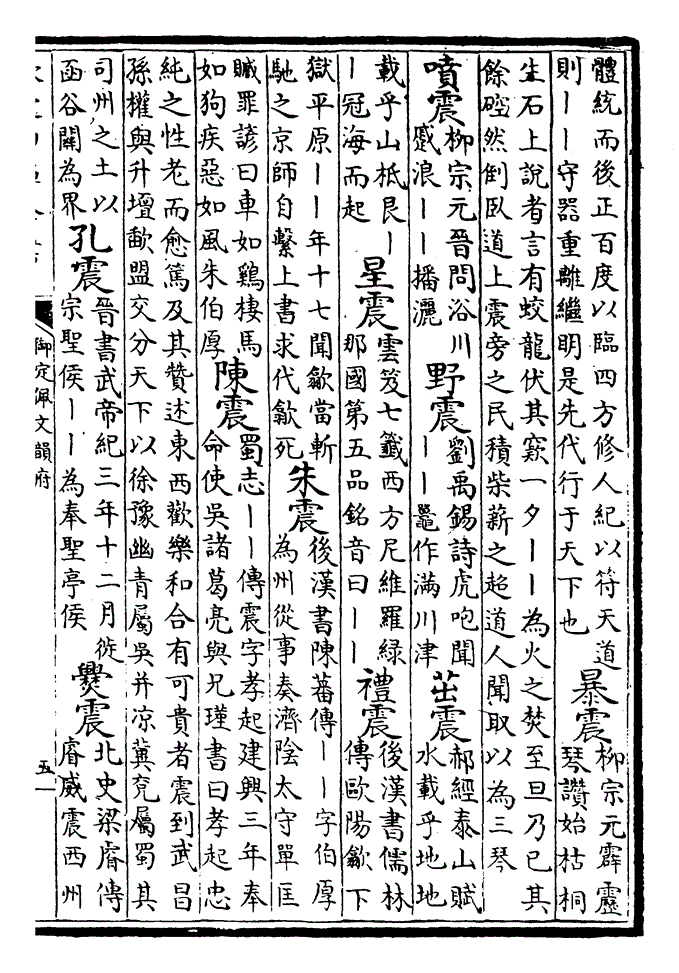 體統而後正百度以臨四方修人紀以符天道
則——守器重離繼明是先代行于天下也
暴震
柳宗元霹靂
琴讚始枯桐
生石上說者言有蛟龍伏其窾一夕——為火之焚至旦乃已其
餘硿然倒臥道上震旁之民積柴薪之超道人聞取以為三琴
噴震
柳宗元晉問浴川
蹙浪——播灑
野震
劉禹錫詩虎咆聞
——鼉作滿川津
茁震
郝經泰山賦
水載乎地地
載乎山柢艮—
—冠海而起
星震
雲笈七籤西方尼維羅綠
那國第五品銘音曰——
禮震
後漢書儒林
傳歐陽歙下
獄平原——年十七聞歙當斬
馳之京師自繫上書求代歙死
朱震
後漢書陳蕃傳——字伯厚
為州從事奏濟陰太守單匡
贓罪諺曰車如鷄棲馬
如狗疾惡如風朱伯厚
陳震
蜀志——傳震字孝起建興三年奉
命使吳諸葛亮與兄瑾書曰孝起忠
純之性老而愈篤及其贊述東西歡樂和合有可貴者震到武昌
孫權與升壇歃盟交分天下以徐豫幽青屬吳并凉冀兗屬蜀其
司州之土以
函谷關為界
孔震
晉書武帝紀三年十二月徙
宗聖侯——為奉聖亭侯
爨震
北史梁睿傳
睿威震西州
御定佩文韻府
五